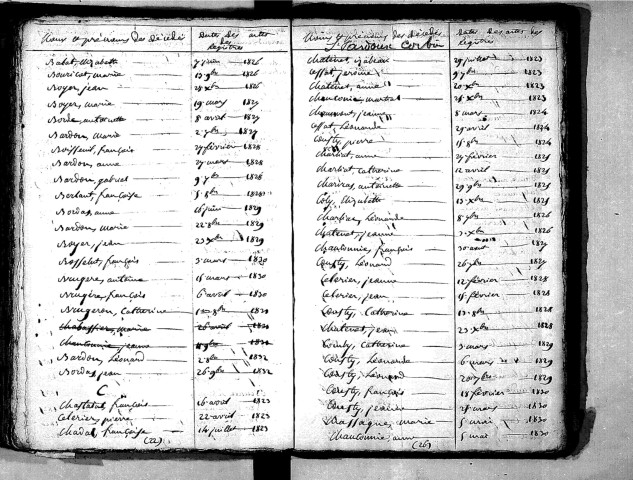 Noms et prénoms des décédés Dates des actes des Registres
Babet, Elizabette 7 juin 1826
Bouricot, marie 13 9bre 1826
Boyer, jean 28 Xbre 1826
Boyer, marie 19 mars 1827
Borda, antoinette 8 avril 1827
Bardon, marie 2 7bre 1827
Boissent, françois 27 février 1828
Bardon, anne 27 mars 1828
Bardon, gabriel 9 7bre 1828
Bertaut, françoise 5 8bre 1828
Bordas, anne 16 juin 1829
Bardon, marie 22 8bre 1829
Boyer, jean 23 Xbre 1829
Bosselut, françois 3 mars 1830
Brugere, antoine 15 mars 1830
Brugère, françois 6 avril 1830
Brugeron, Catherine 8bre 1830
Chabassier, marie 26 avril
Chautonnie, jeanne 9bre
Bardon, Léonard 2 8bre 1832
Bordas, jean 26 9bre 1832
C
Chastatel, françois 16 avril 1823
Celerier, pierre 22 avril 1823
Chadal, françoise 14 juillet 1823
(22)
Noms et prénoms des décédés Dates des actes des Registres
St Pardoux Corbier
Chatenet, izabeau 29 juillet 1823
Cessat, jerome 9 7bre 1823
Chatenet, anne 20 Xbre 1823
Chautonnie, marthe 28 Xbre 1823
Chaumont, jeanne 8 mars 1824
Cessat, Léonarde 29 avril 1824
Cousty, pierre 15 8bre 1824
Charbiat, anne 27 février 1825
Charbiat, Catherine 12 avril 1825
Chariras, antoinette 29 9bre 1825
Coly, Elizabette 13 Xbre 1825
Charbier, Léonarde 8 7bre 1826
Chatenet, jeanne 3 Xbre 1826
Chautonnie, françois 30 août 1827
Cousty, Léonard 26 7bre 1827
Celerier, jeanne 12 février 1828
Celerier, jean 15 février 1828
Cousty, Catherine 13 8bre 1828
Chatenet, jean 23 Xbre 1828
Couly, Catherine 3 mars 1829
Cousty, Léonarde 6 mars 1829
Cousty, Léonard 20 7bre 1829
Cousty, françois 18 février 1830
Cousty, jeanne 25 mars 1830
Chassagnes, marie 5 mai 1830
Chautonnie, anne 5 mai 1830
(26)